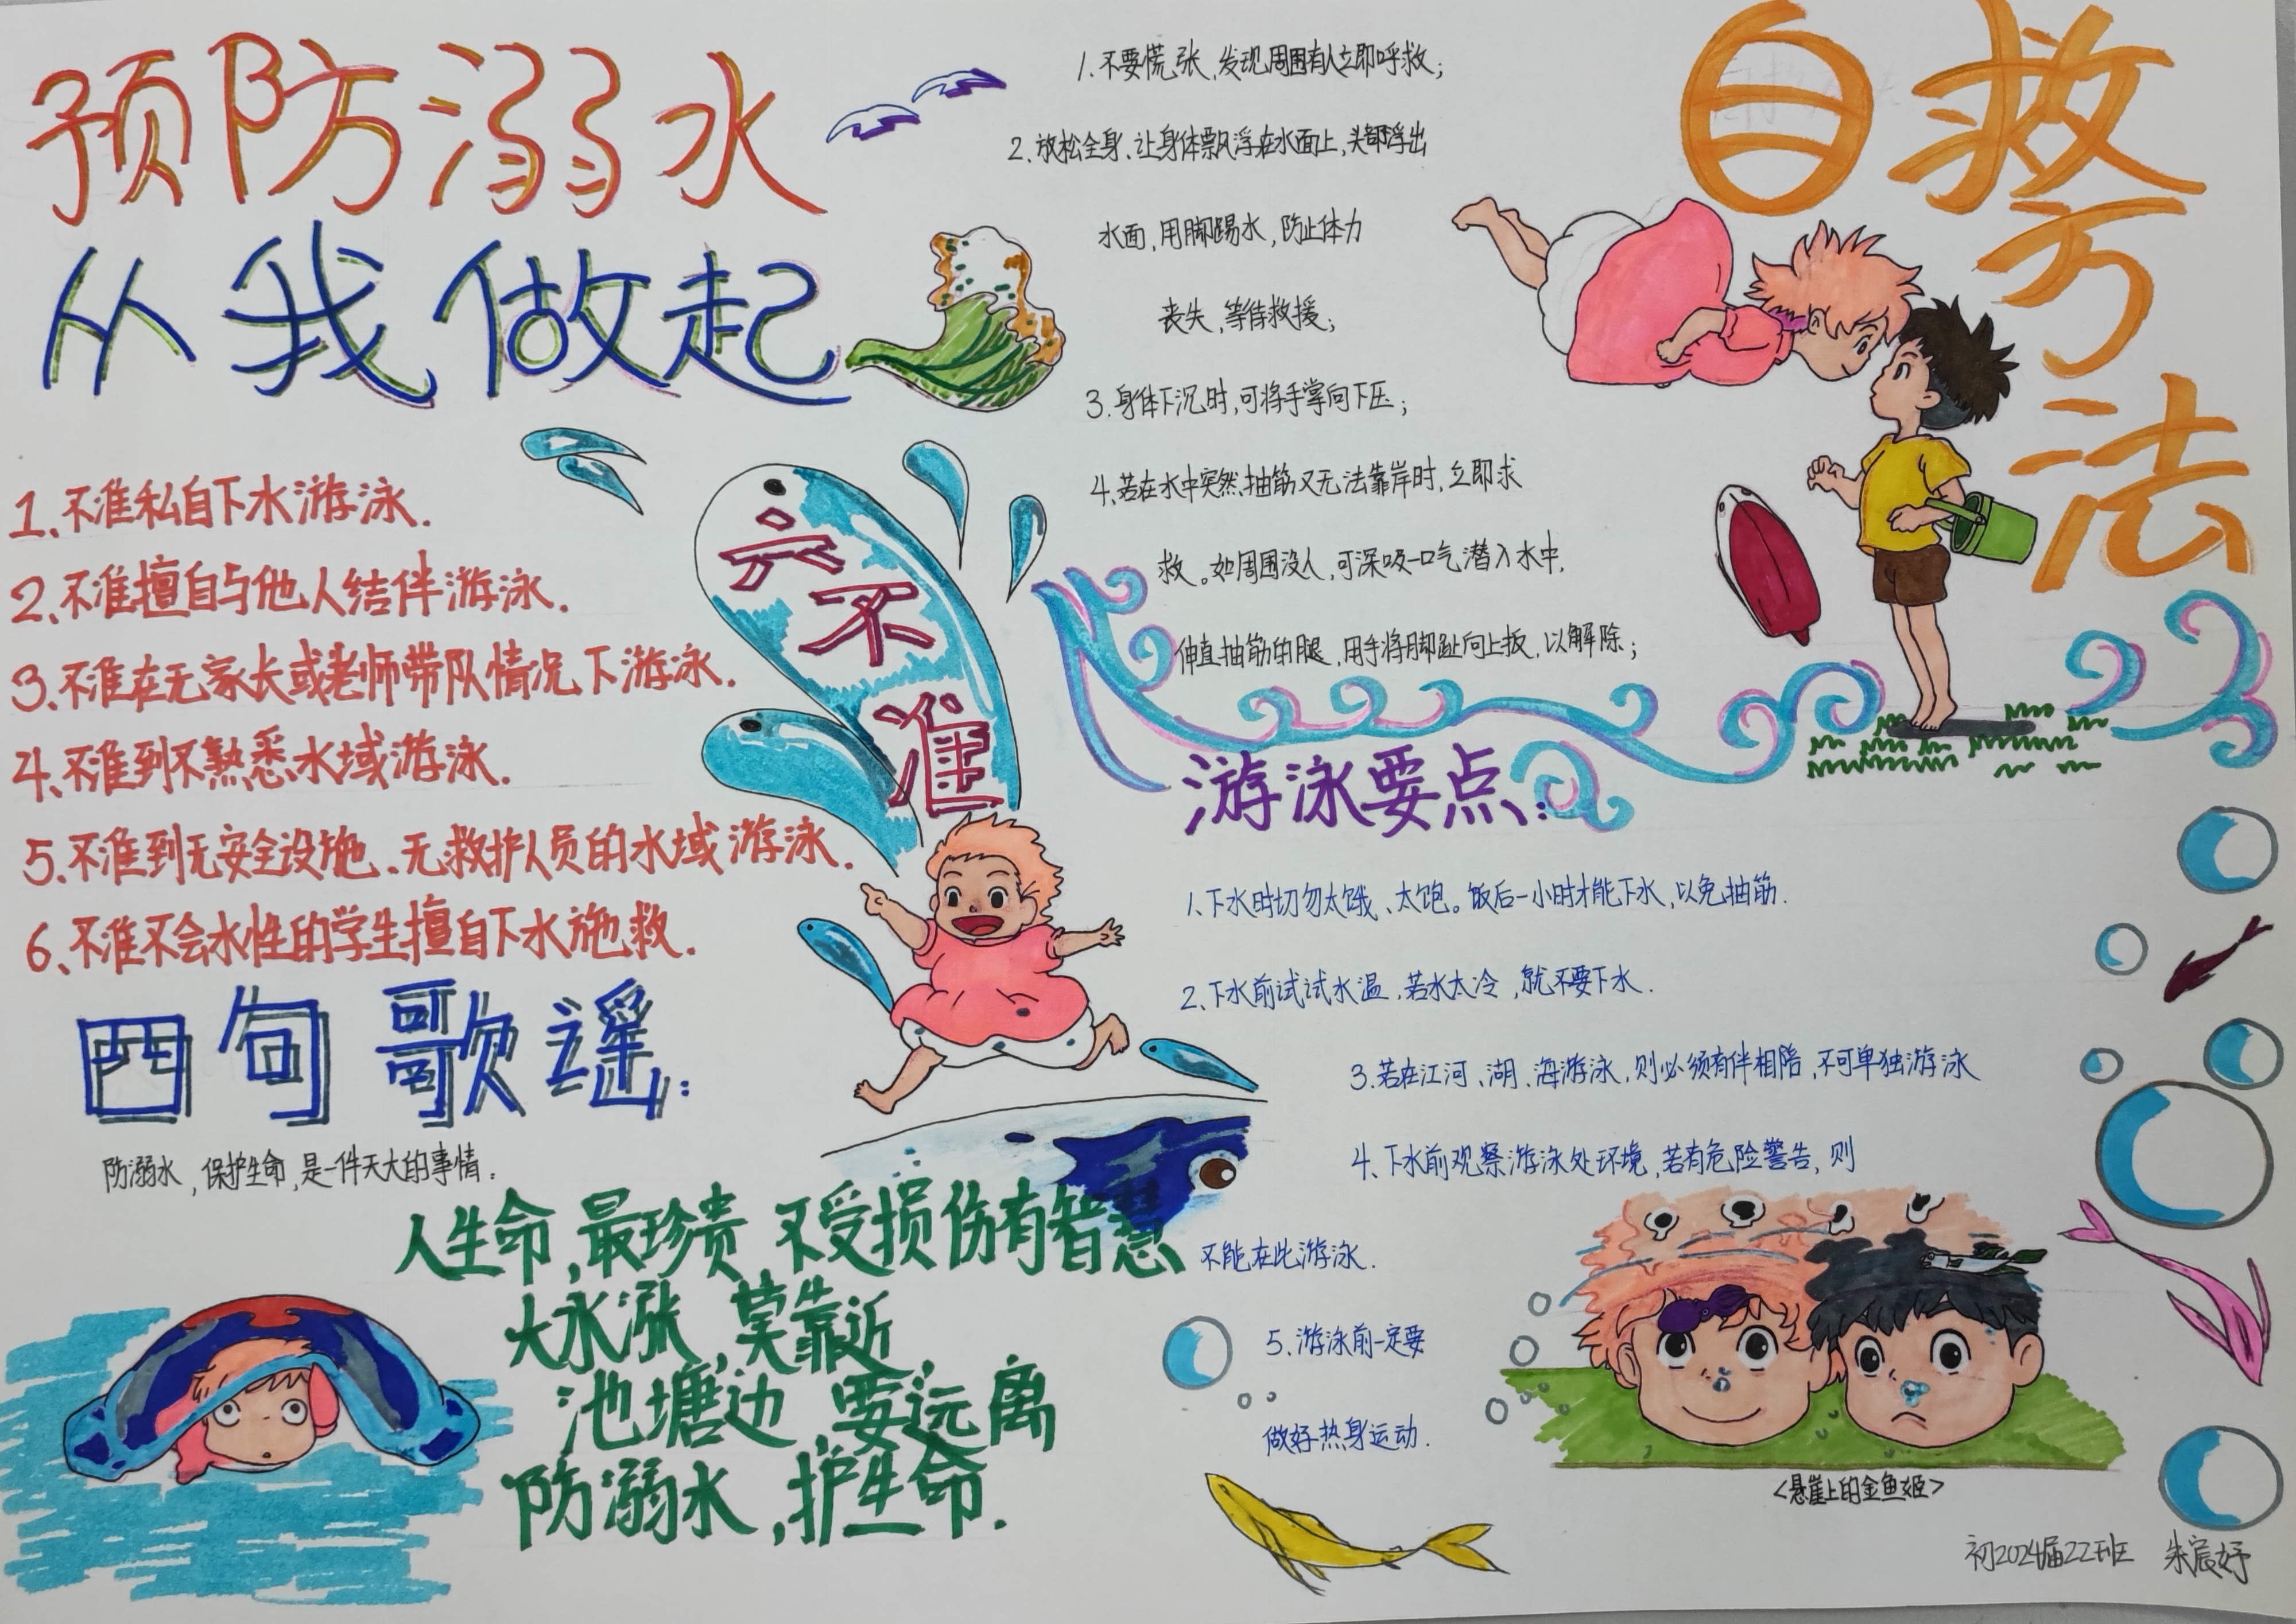 预防溺水
从我做起
六不准
1、不准私自下水游泳.
2、不准擅自与他人结伴游泳.
3、不准在无家长或老师带队情况下游泳.
4、不准到不熟悉水域游泳.
5、不准到无安全设施、无救护人员的水域游泳.
6、不准不会水性的学生擅自下水施救.
四句歌谣:
防溺水,保护生命,是一件天大的事情.
人生命,最珍贵 不受损伤有智慧
大水涨,莫靠近,
池塘边,要远离
防溺水,护生命.
自救方法
1.不要慌张,发现周围有人立即呼救;
2.放松全身、让身体飘浮在水面上,头部浮出
水面,用脚踢水,防止体力
丧失,等待救援;
3.身体下沉时,可将手掌向下压;
4、若在水中突然抽筋又无法靠岸时,立即求
救。如周围没人,可深吸一口气潜入水中,
伸直抽筋的腿,用手将脚趾向上扳,以解除;
游泳要点:
1、下水时切勿太饿、太饱。饭后一小时才能下水,以免抽筋.
2、下水前试试水温,若水太冷,就不要下水.
3.若在江河、湖、海游泳,则必须有伴相陪,不可单独游泳
4、下水前观察游泳处环境,若有危险警告,则
不能在此游泳.
5.游泳前一定要
做好热身运动.
<悬崖上的金鱼姬>
初2024届22班 朱宸妤